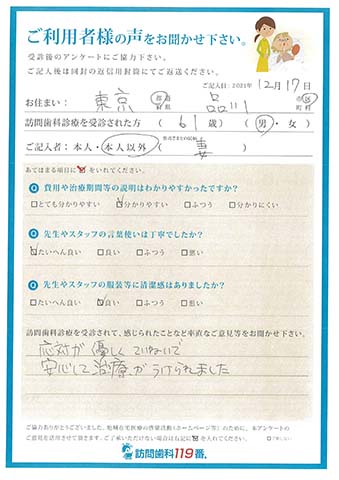 ご利用者様の声をお聞かせ下さい。
受診後のアンケートにご協力下さい。
ご記入後は同封の返信用封筒にてご返送ください。
ご記入日：2021年12月17日
お住まい：東京 都道府県 品川 市区町村
訪問歯科診療を受診された方（61歳）（男・女）
ご記入者：本人・本人以外（妻）
あてはまる項目に☑をいれてください。
Q 費用や治療期間等の説明はわかりやすかったですか？
□とても分かりやすい ☑分かりやすい □ふつう □分かりにくい
Q 先生やスタッフの言葉使いは丁寧でしたか？
☑たいへん良い □良い □ふつう □悪い
Q 先生やスタッフの服装等に清潔感はありましたか？
□たいへん良い ☑良い □ふつう □悪い
訪問歯科診療を受診されて、感じられたことなど率直なご意見等をお聞かせ下さい。
応対が優しくていねいで
安心して治療がうけられました
ご協力ありがとうございました。
ご意見を活用させて頂きます。ご了承いただけない場合は右記に☑を入れてください。
訪問歯科119番®